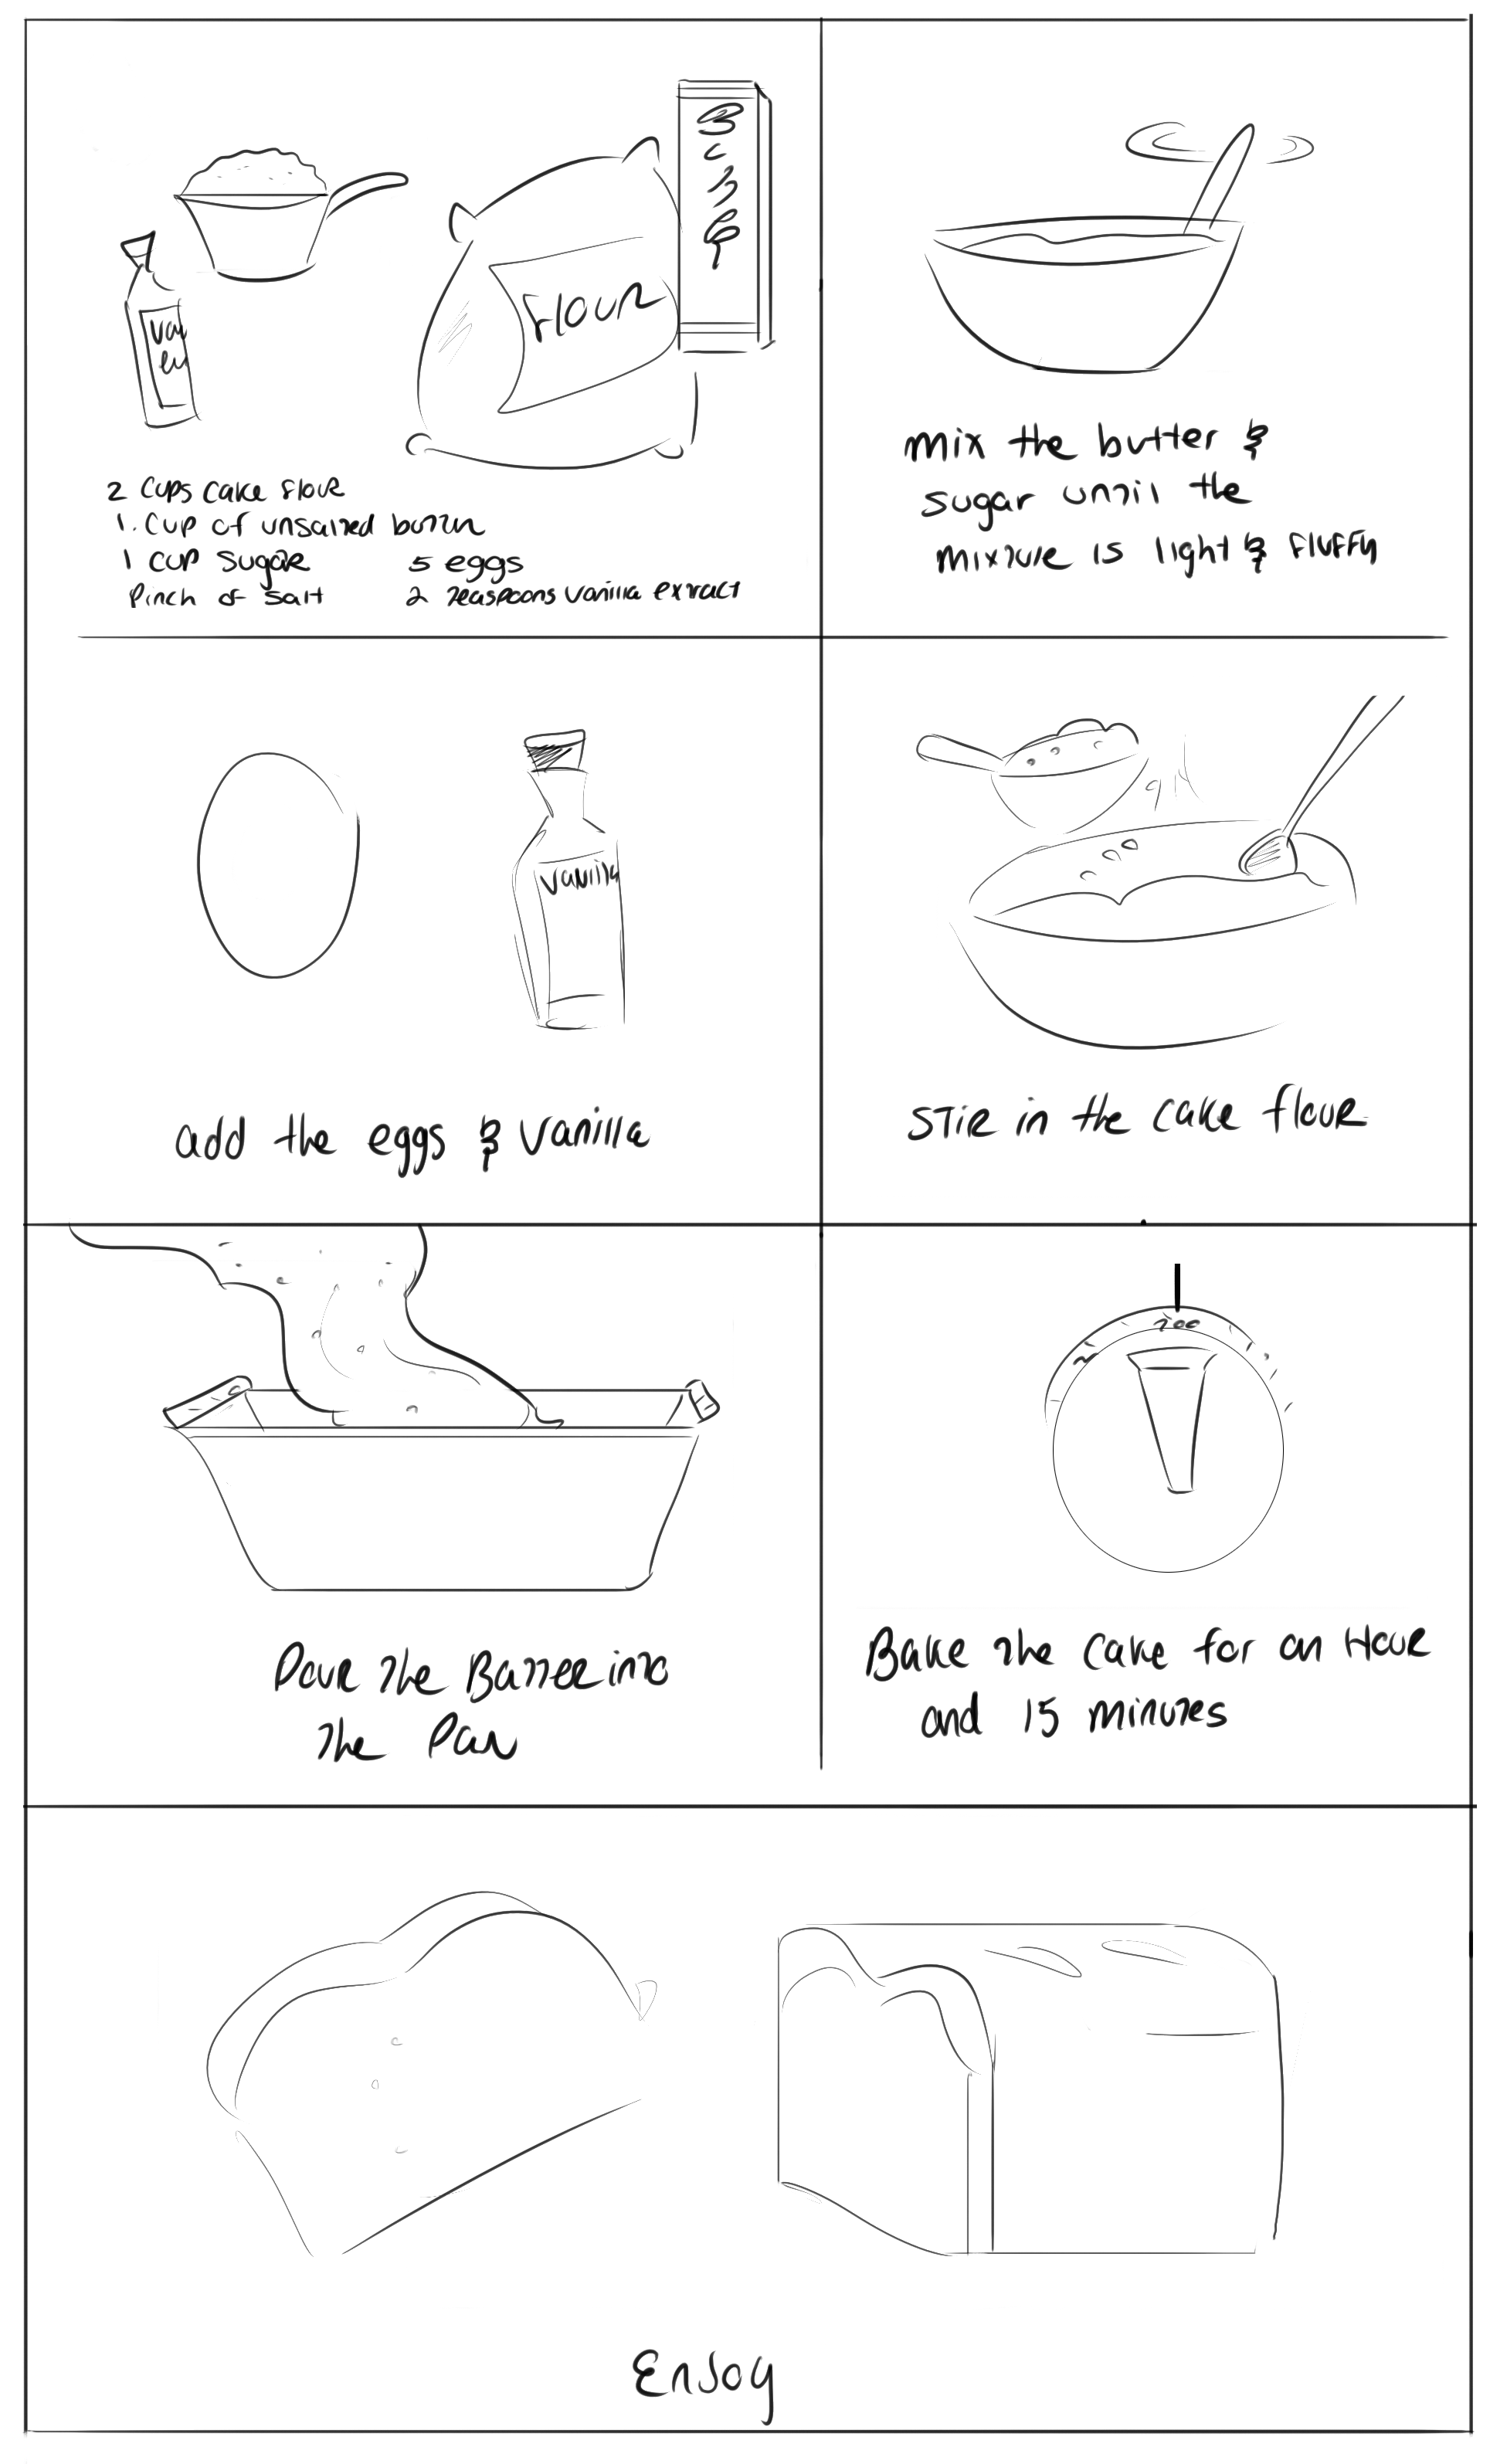 FLOUR
2 cups cake flour
1. cup of unsalted butter
1 cup sugar
5 eggs
Pinch of salt
2 teaspoons vanilla extract
mix the butter &
sugar until the
mixture is light & fluffy
vanilla
add the eggs & vanilla
STIR in the cake flour
Pour the Batter into
the Pan
Bake the cake for an Hour
and 15 minutes
Enjoy